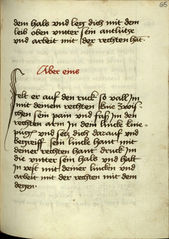 65
dem hals vnd leg dich mit dem
leib oben vnter sein antlütze
vnd arbeit mit der rechten hat
Aber eins
Felt er auf den ruck so vall Im
mit deinem rechten knie zwis
chen sein pain vnd fass In den
rechten arm In dein lincke elen
pug vnd setz dich darauf vnd
begreiff sein lincke hant mit
deiner rechten hant druck In
die vnter sein hals vnd halt
In vest mit deiner lincken vnd
arbeit mit der rechten mit dem
degen